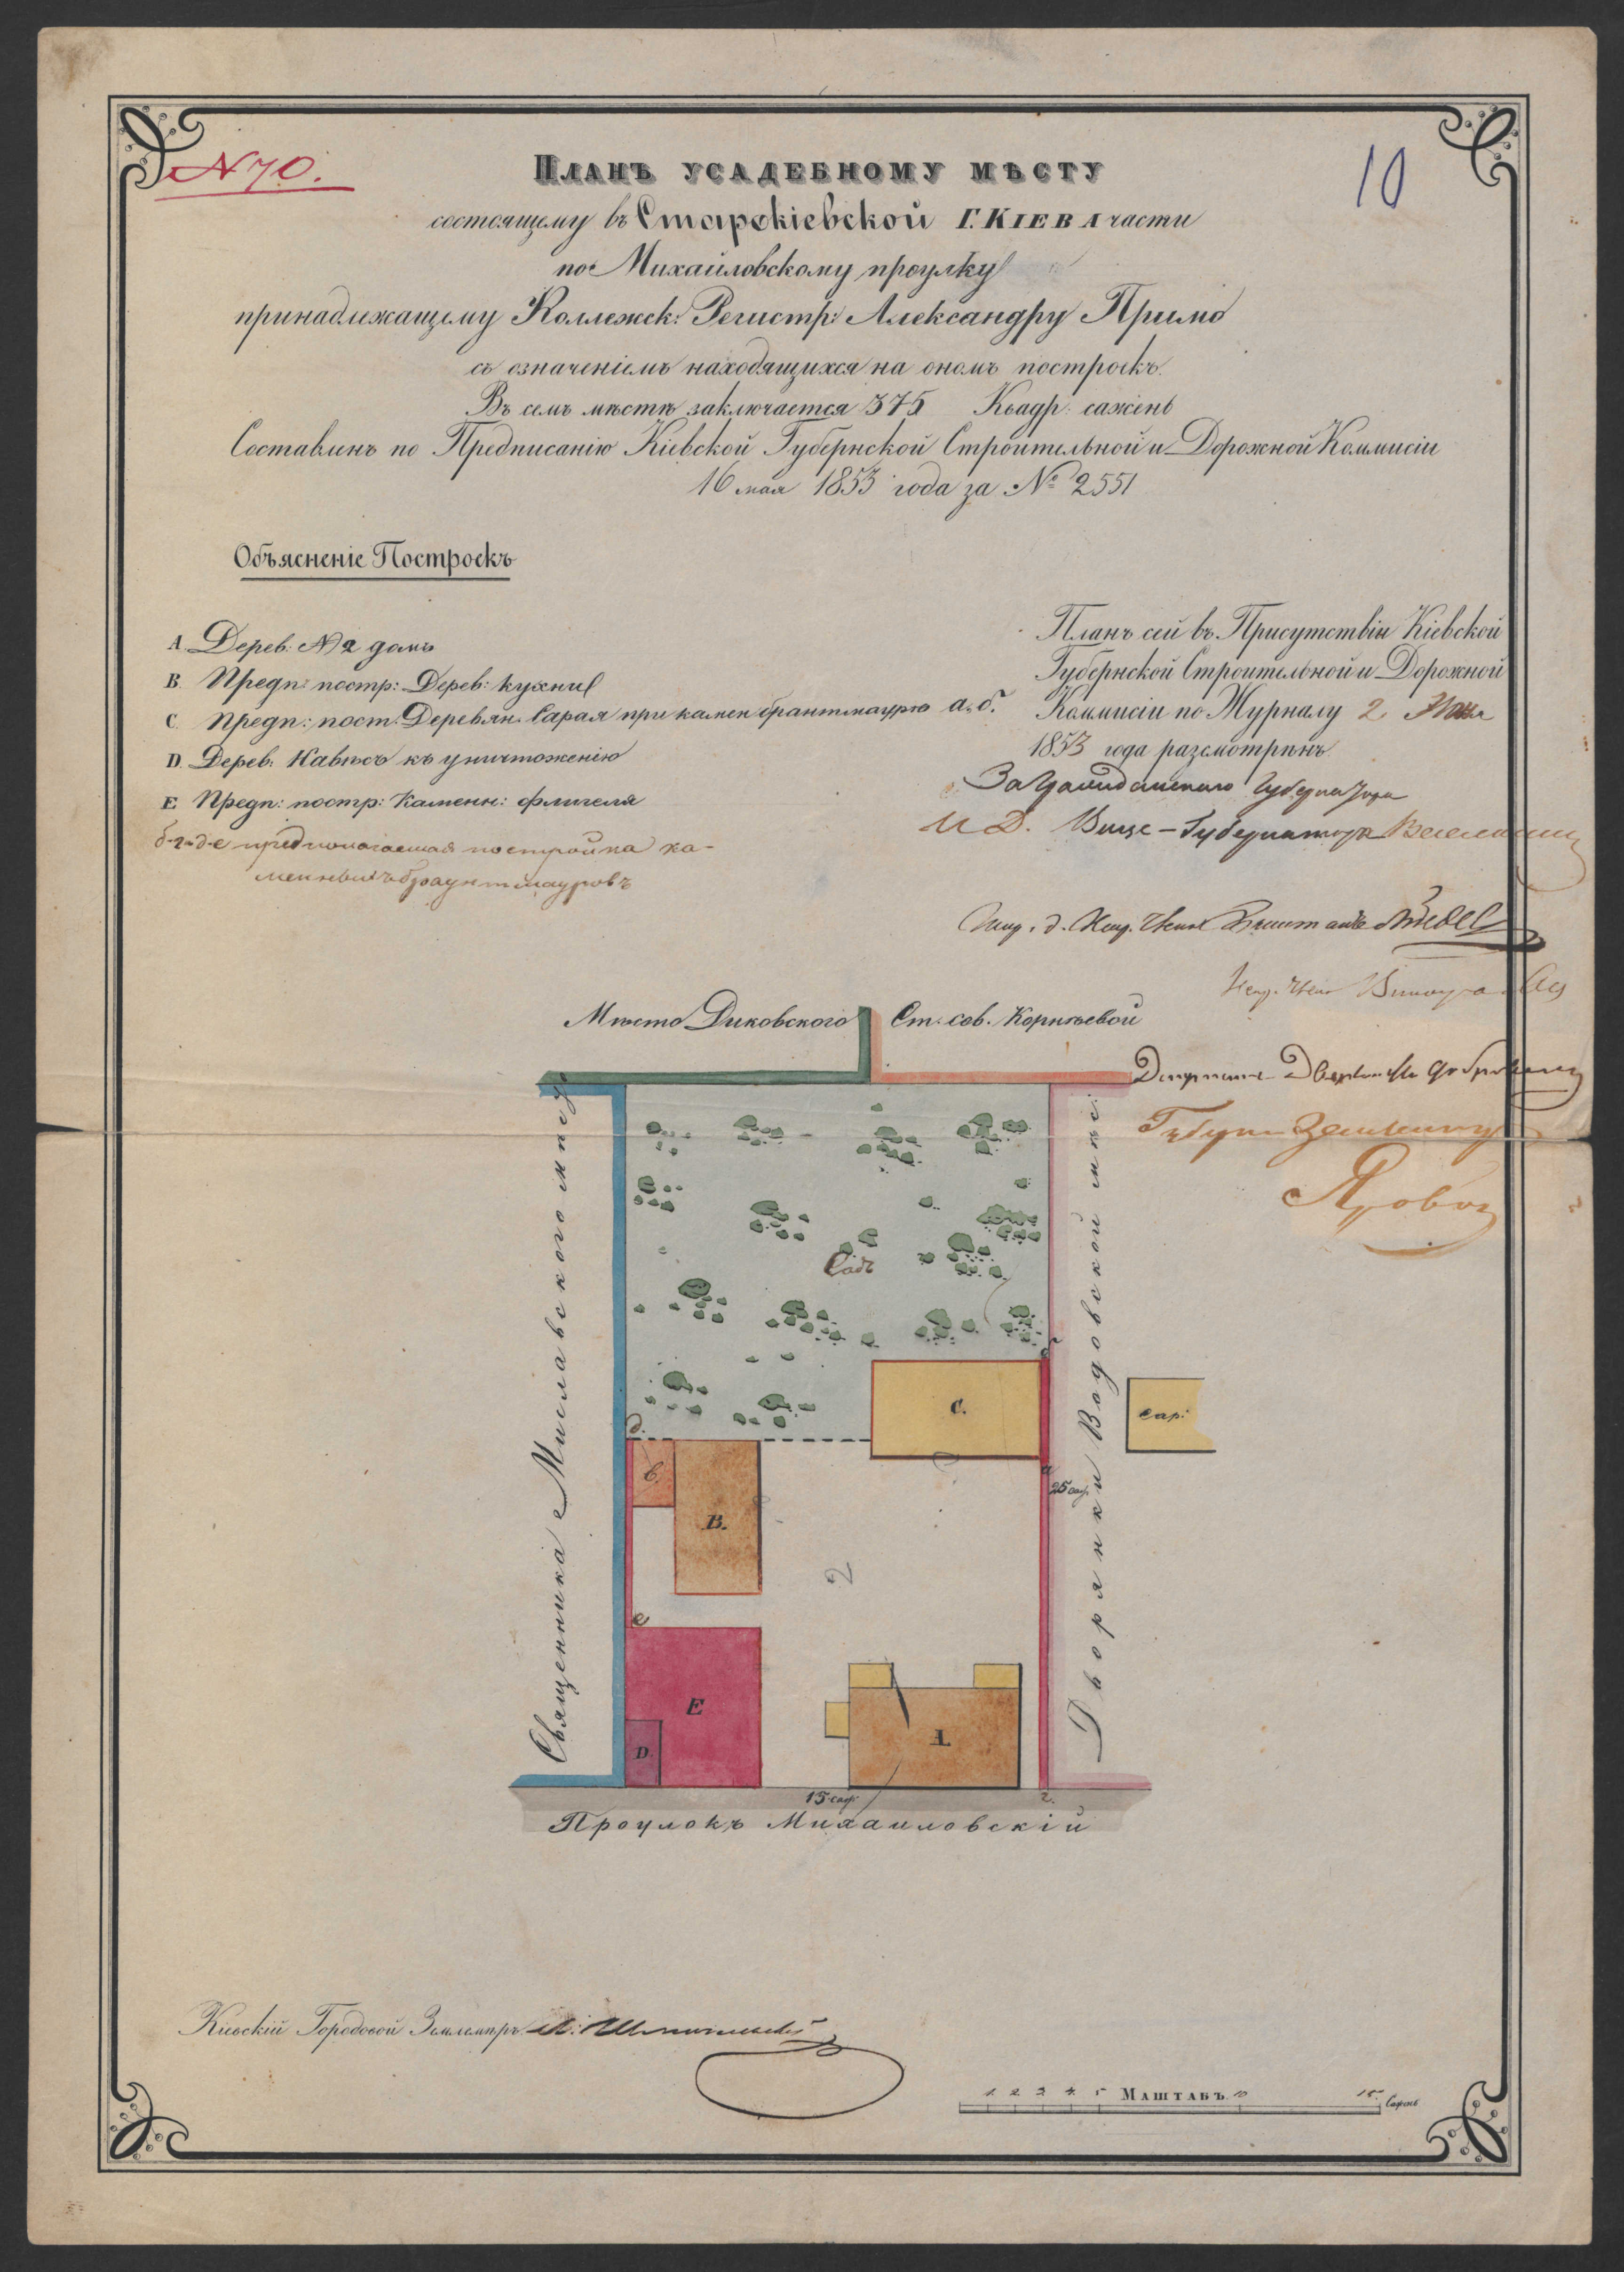 N 70.
10
Планъ усадебному мѣсту
состоящему въ Старокіевской Г. КІЕВА части
по Михайловскому проулку
принадлежащему Коллежск: Регистр: Александру Примо
съ означеніемъ находящихся на ономъ построекъ.
Въ семъ мѣстѣ заключается 375 Квадр: сажень
Составленъ по Предписанію Кіевской Губернской Строительной и Дорожной Коммисіи
16 мая 1853 года за № 2551
Объясненіе Построекъ
A. Дерев: №2 домъ
B. Предп: постр: Дерев: кухни
C. Предп: пост. Деревян. Сарая при камен брантмаурѣ а.б.
D. Дерев: Навѣсъ къ уничтоженію
E Предп: постр: Каменн: флигеля
б-г и д-е предполагаемая постройка ка-
менныхъ брантмауровъ
Планъ сей въ Присутствіи Кіевской
Губернской Строительной и Дорожной
Коммисіи по Журналу 2 Июня
1853 года разсмотрѣнъ
За Гражданского Губернатора
И. Д. Вице-Губернатора
Мѣсто Диковского
Ст: сов. Корнѣевой
Священника Миславского мѣсто
Дворянки Водовской мѣс:
Садъ
C.
Сар:
б
а
25 саж.
д.
в.
B.
2
е
E
D.
A
15 саж:
г.
Проулокъ Михаиловскій
Кіевскій Городовой Землемѣръ
1. 2 3 4 5 Маштабъ 10 15. Сажень